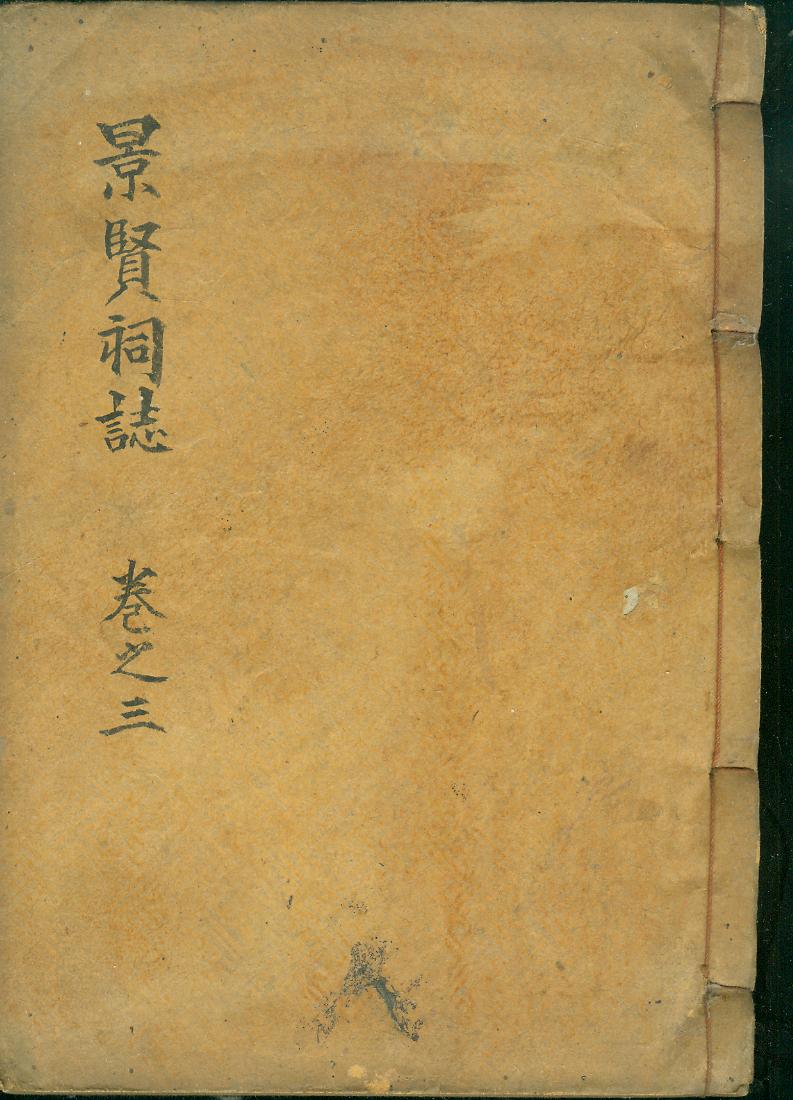 景賢祠誌 卷之三
人